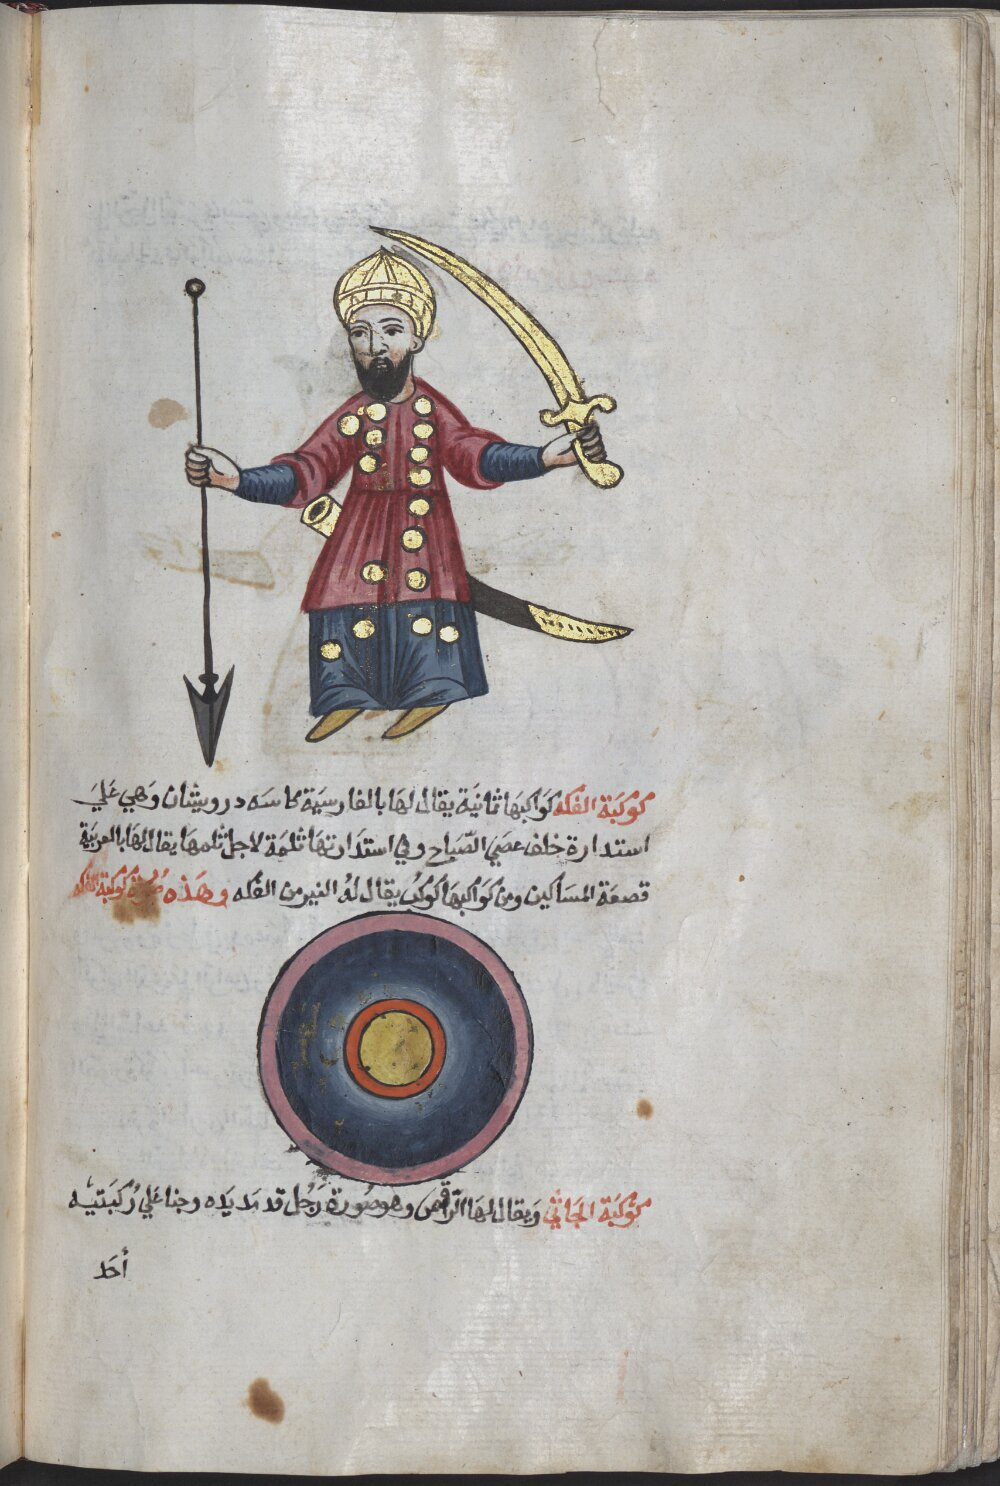 كوكبَة الفكه كوَاكبهَا ثمانيَة يقال لهَا بالفارسيَة كاسَه درويشان وَهي عَليَ
استدارة خلف عصَي الصّباح وفي استدَارتهَا ثلمَة لاجل ثلمهَا يقال لهَا بالعربيَة
قصعَة المسَاكين ومن كوَاكبهَا كوكبُ يقال لهُ النير من الفكه وهَذه صُورَة كوكبَة الفكه
كوكبَة الجَاثي وَيقال لهَا الرّاقص وهو صُورَة رَجُل قد مَد يَده وجثا عَلي رُكبَتيه
أحَد